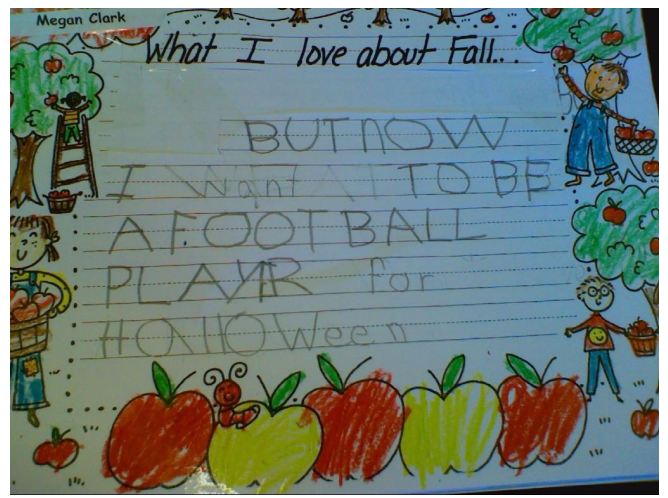 Megan Clark
What I love about Fall...
BUTNOW
I Want TO BE
A FOOTBALL
PLAYR for
HAllOWeen